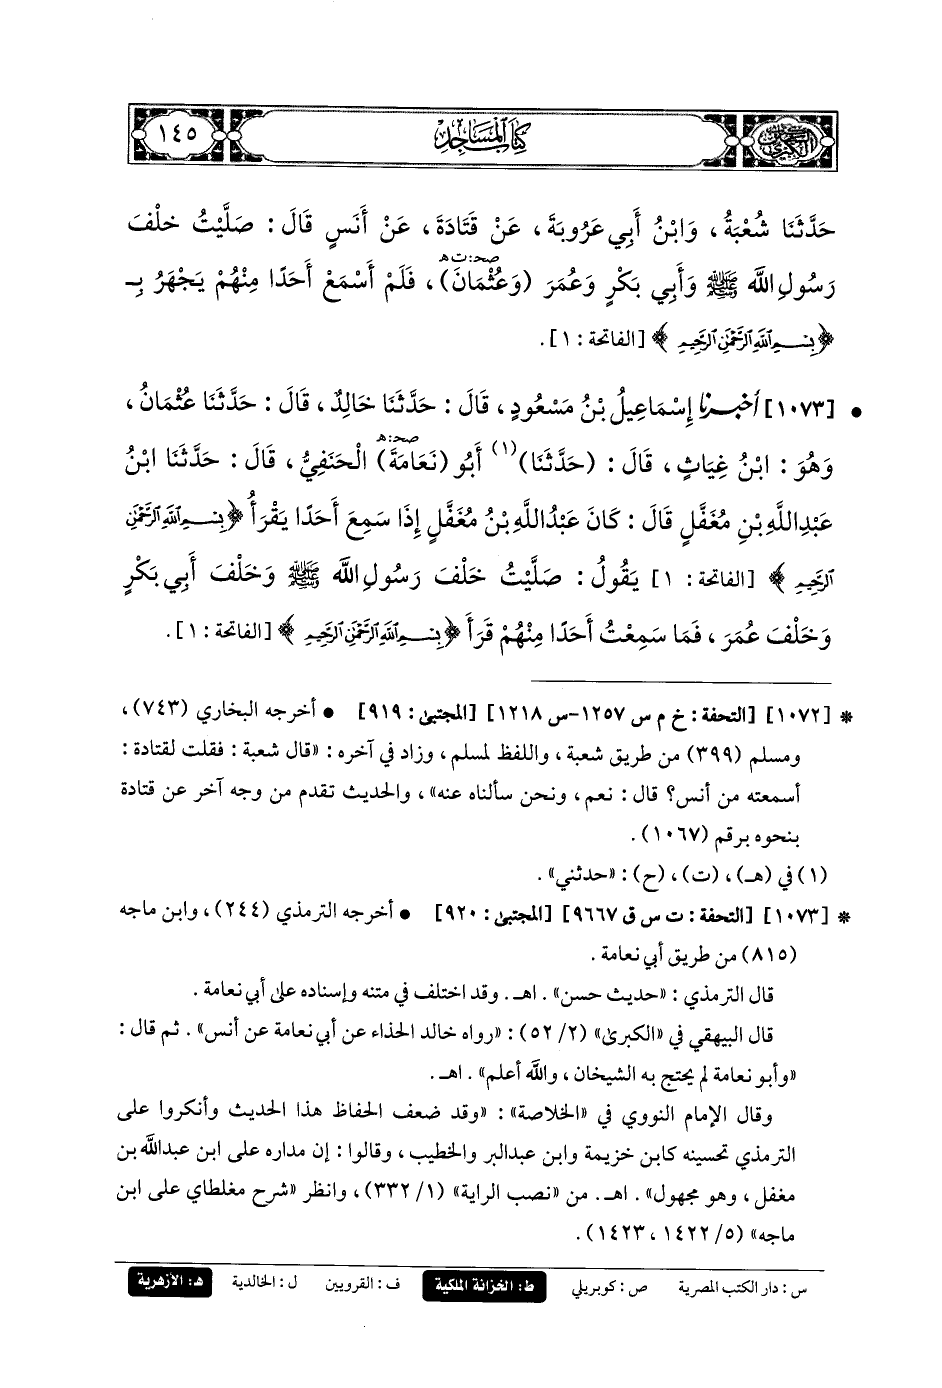 السنن الكبرى
كتاب المساجد
١٤٥
حَدَّثَنَا شُعْبَةُ ، وَابْنُ أَبِي عَرُوبَةَ ، عَنْ قَتَادَةَ ، عَنْ أَنَسٍ قَالَ : صَلَّيْتُ خَلْفَ
صحـ : ت هـ
رَسُولِ اللَّه ﷺ وَأَبِي بَكْرٍ وَعُمَرَ (وَعُثْمَانَ) ، فَلَمْ أَسْمَعْ أَحَدًا مِنْهُمْ يَجْهَرُ بِـ
﴿بِسْمِ اللَّهِ الرَّحْمَٰنِ الرَّحِيمِ﴾ [الفاتحة : ١] .
• [١٠٧٣] أَخْبَرَنَا إِسْمَاعِيلُ بْنُ مَسْعُودٍ ، قَالَ : حَدَّثَنَا خَالِدٌ ، قَالَ : حَدَّثَنَا عُثْمَانُ ،
صحـ : هـ
وَهُوَ : ابْنُ غِيَاثٍ ، قَالَ : (حَدَّثَنَا)(١) أَبُو (نَعَامَةَ) الْحَنَفِيُّ ، قَالَ : حَدَّثَنَا ابْنُ
عَبْدِاللَّهِ بْنِ مُغَفَّلٍ قَالَ : كَانَ عَبْدُاللَّهِ بْنُ مُغَفَّلٍ إِذَا سَمِعَ أَحَدًا يَقْرَأُ ﴿بِسْمِ اللَّهِ الرَّحْمَٰنِ
الرَّحِيمِ﴾ [الفاتحة : ١] يَقُولُ : صَلَّيْتُ خَلْفَ رَسُولِ اللَّه ﷺ وَخَلْفَ أَبِي بَكْرٍ
وَخَلْفَ عُمَرَ ، فَمَا سَمِعْتُ أَحَدًا مِنْهُمْ قَرَأَ ﴿بِسْمِ اللَّهِ الرَّحْمَٰنِ الرَّحِيمِ﴾ [الفاتحة : ١] .
* [١٠٧٢] [التحفة : خ م س ١٢٥٧-س ١٢١٨] [المجتبى : ٩١٩] • أخرجه البخاري (٧٤٣) ،
ومسلم (٣٩٩) من طريق شعبة ، واللفظ لمسلم ، وزاد في آخره : «قال شعبة : فقلت لقتادة :
أسمعته من أنس؟ قال : نعم ، ونحن سألناه عنه» ، والحديث تقدم من وجه آخر عن قتادة
بنحوه برقم (١٠٦٧) .
(١) في (هـ) ، (ت) ، (ح) : «حدثني» .
* [١٠٧٣] [التحفة : ت س ق ٩٦٦٧] [المجتبى : ٩٢٠] • أخرجه الترمذي (٢٤٤) ، وابن ماجه
(٨١٥) من طريق أبي نعامة .
قال الترمذي : «حديث حسن» . اهـ . وقد اختلف في متنه وإسناده على أبي نعامة .
قال البيهقي في «الكبرى» (٢/ ٥٢) : «رواه خالد الحذاء عن أبي نعامة عن أنس» . ثم قال :
«وأبو نعامة لم يحتج به الشيخان ، واللَّه أعلم» . اهـ .
وقال الإمام النووي في «الخلاصة» : «وقد ضعف الحفاظ هذا الحديث وأنكروا على
الترمذي تحسينه كابن خزيمة وابن عبدالبر والخطيب ، وقالوا : إن مداره على ابن عبداللَّه بن
مغفل ، وهو مجهول» . اهـ . من «نصب الراية» (١/ ٣٣٢) ، وانظر «شرح مغلطاي على ابن
ماجه» (٥/ ١٤٢٢ ، ١٤٢٣) .
س : دار الكتب المصرية ص : كوبريلي ط : الخزانة الملكية ف : القرويين ل : الخالدية هـ : الأزهرية